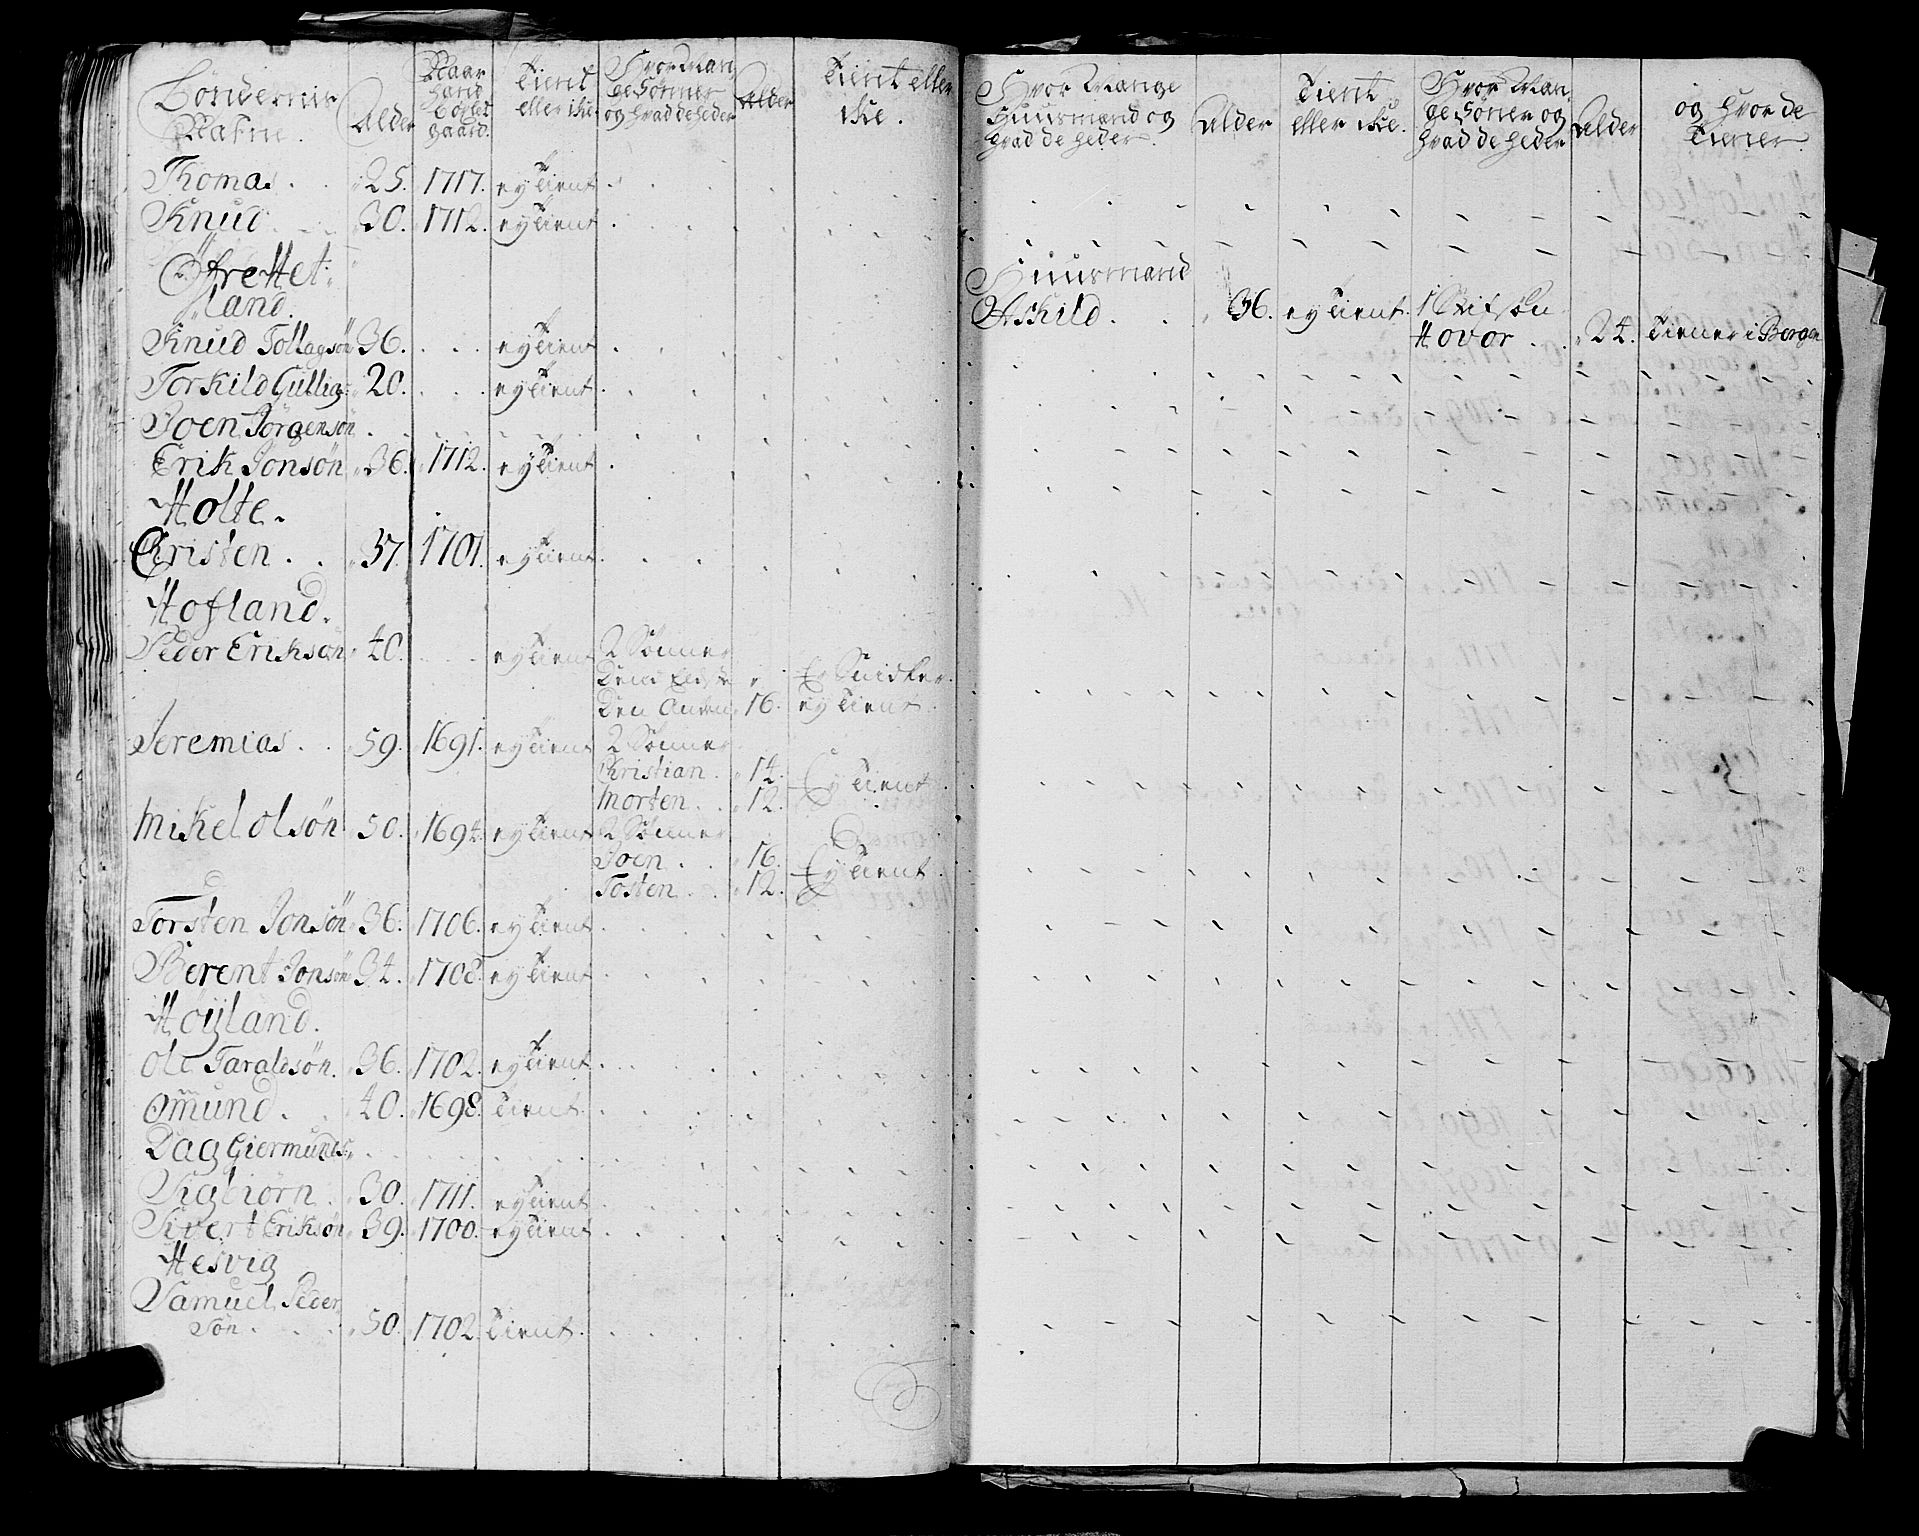 Bøndernis Nafne. | Alder | Naar hand bøxlet gaard. | Tient eller ikke. | Hvor Mange Sønner og hvad de heder | Alder | Tient eller ikke. | Hvor Mange Huusmænd og hvad de heder. | Alder | Tient eller ikke. | Hvor Mange Sønner og hvad de heder | Alder | og hvor de Tiener.
Thomas . . 25. 1717. ey tient
Knud . . 30. 1712. ey tient
land.
Huusmand
Askild . . 36. ey tient. 1
Hovor . 24. tiener i Bergen
Knud Tollagsøn 36. . . . ey tient
Torkild Gullig: 20. . . . ey tient
Joen Jørgensøn
Erik Jonsøn 36. 1712. ey tient
Holte.
Cristen . . 37. 1701. ey tient
Hofland.
Peder Eriksøn 40. . . . ey tient 2 Sønner
Dend Eldste Er Snidker.
Den Anden 16. ey tient.
Jeremias . . 59. 1691. ey tient 2 Sønner
Christian . 14.
Morten . . 12. Ey tient
Mikel Olsøn 50. 1694. ey tient 2 Sønner
Joen . . 16.
Tosten . . 12. Ey tient
Torsten Jonsøn 36. 1706. ey tient
Berent Jonsøn 34. 1708. ey tient
Høyland.
Ole Taraldsøn. 36. 1702. ey tient
Omund . . 40. 1698. tient
Dag Giermunds:
Sigbiørn . 30. 1711. ey tient
Sivert Eriksøn 39. 1700. ey tient
Hesvig
Samuel Peder
søn . . . 50. 1702. tient.